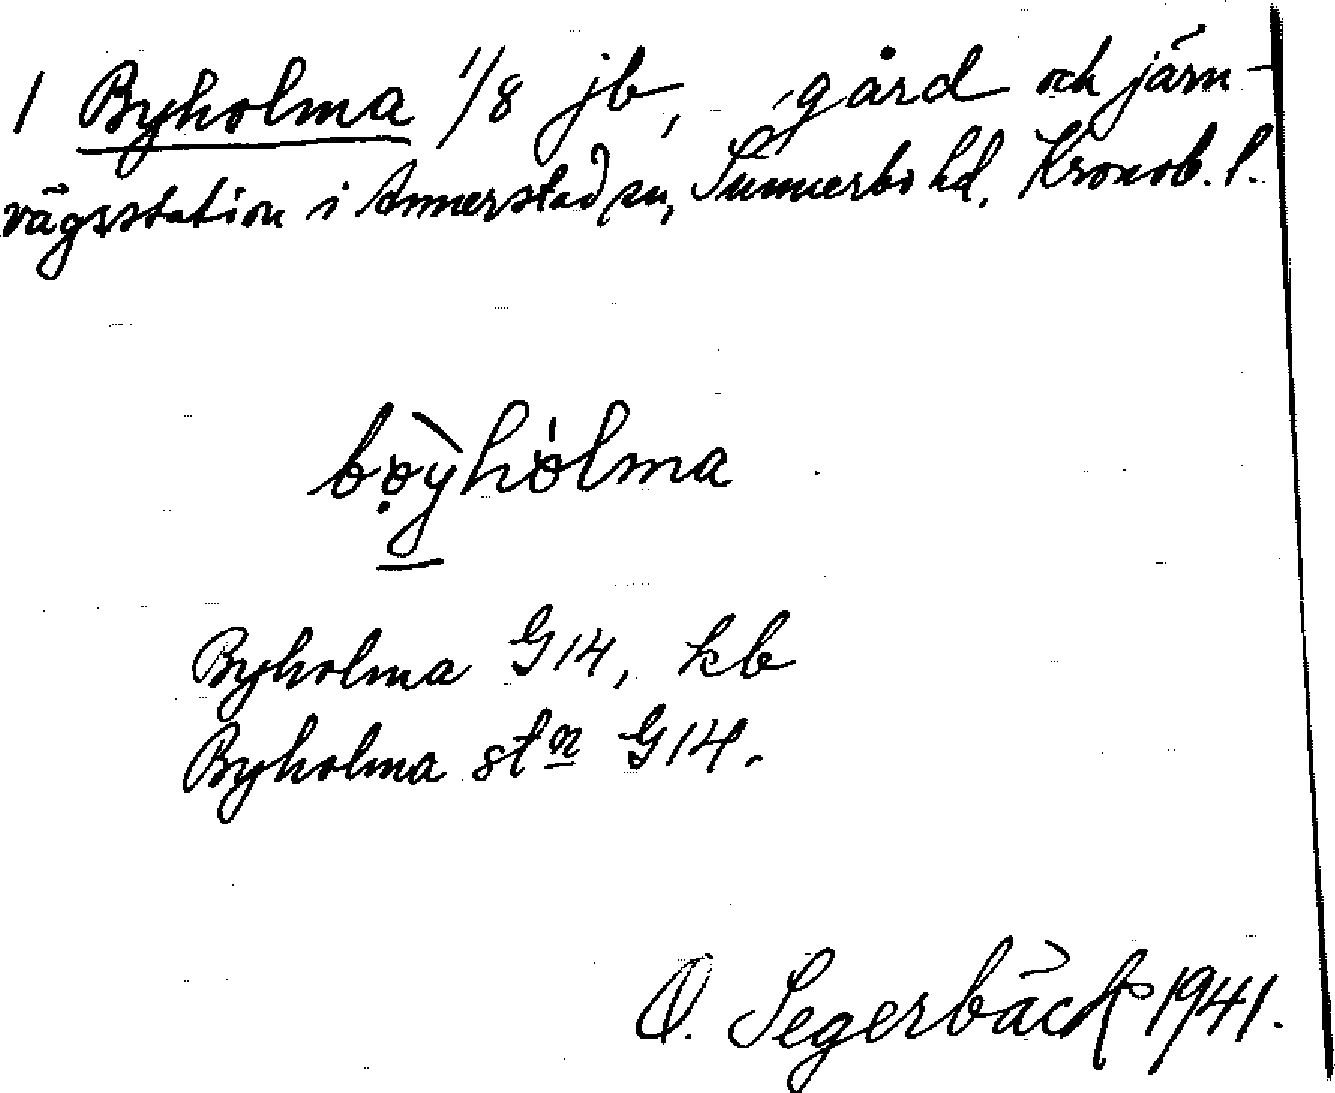 1 Byholma 1/8 jb, gård och järn-
vägsstation i Annerstad sn, Sunnerbo hd. Kronob. l.
bo̤ỳhölma
Byholma G14, kb
Byholma stn G14.
O. Segerbäck 1941.